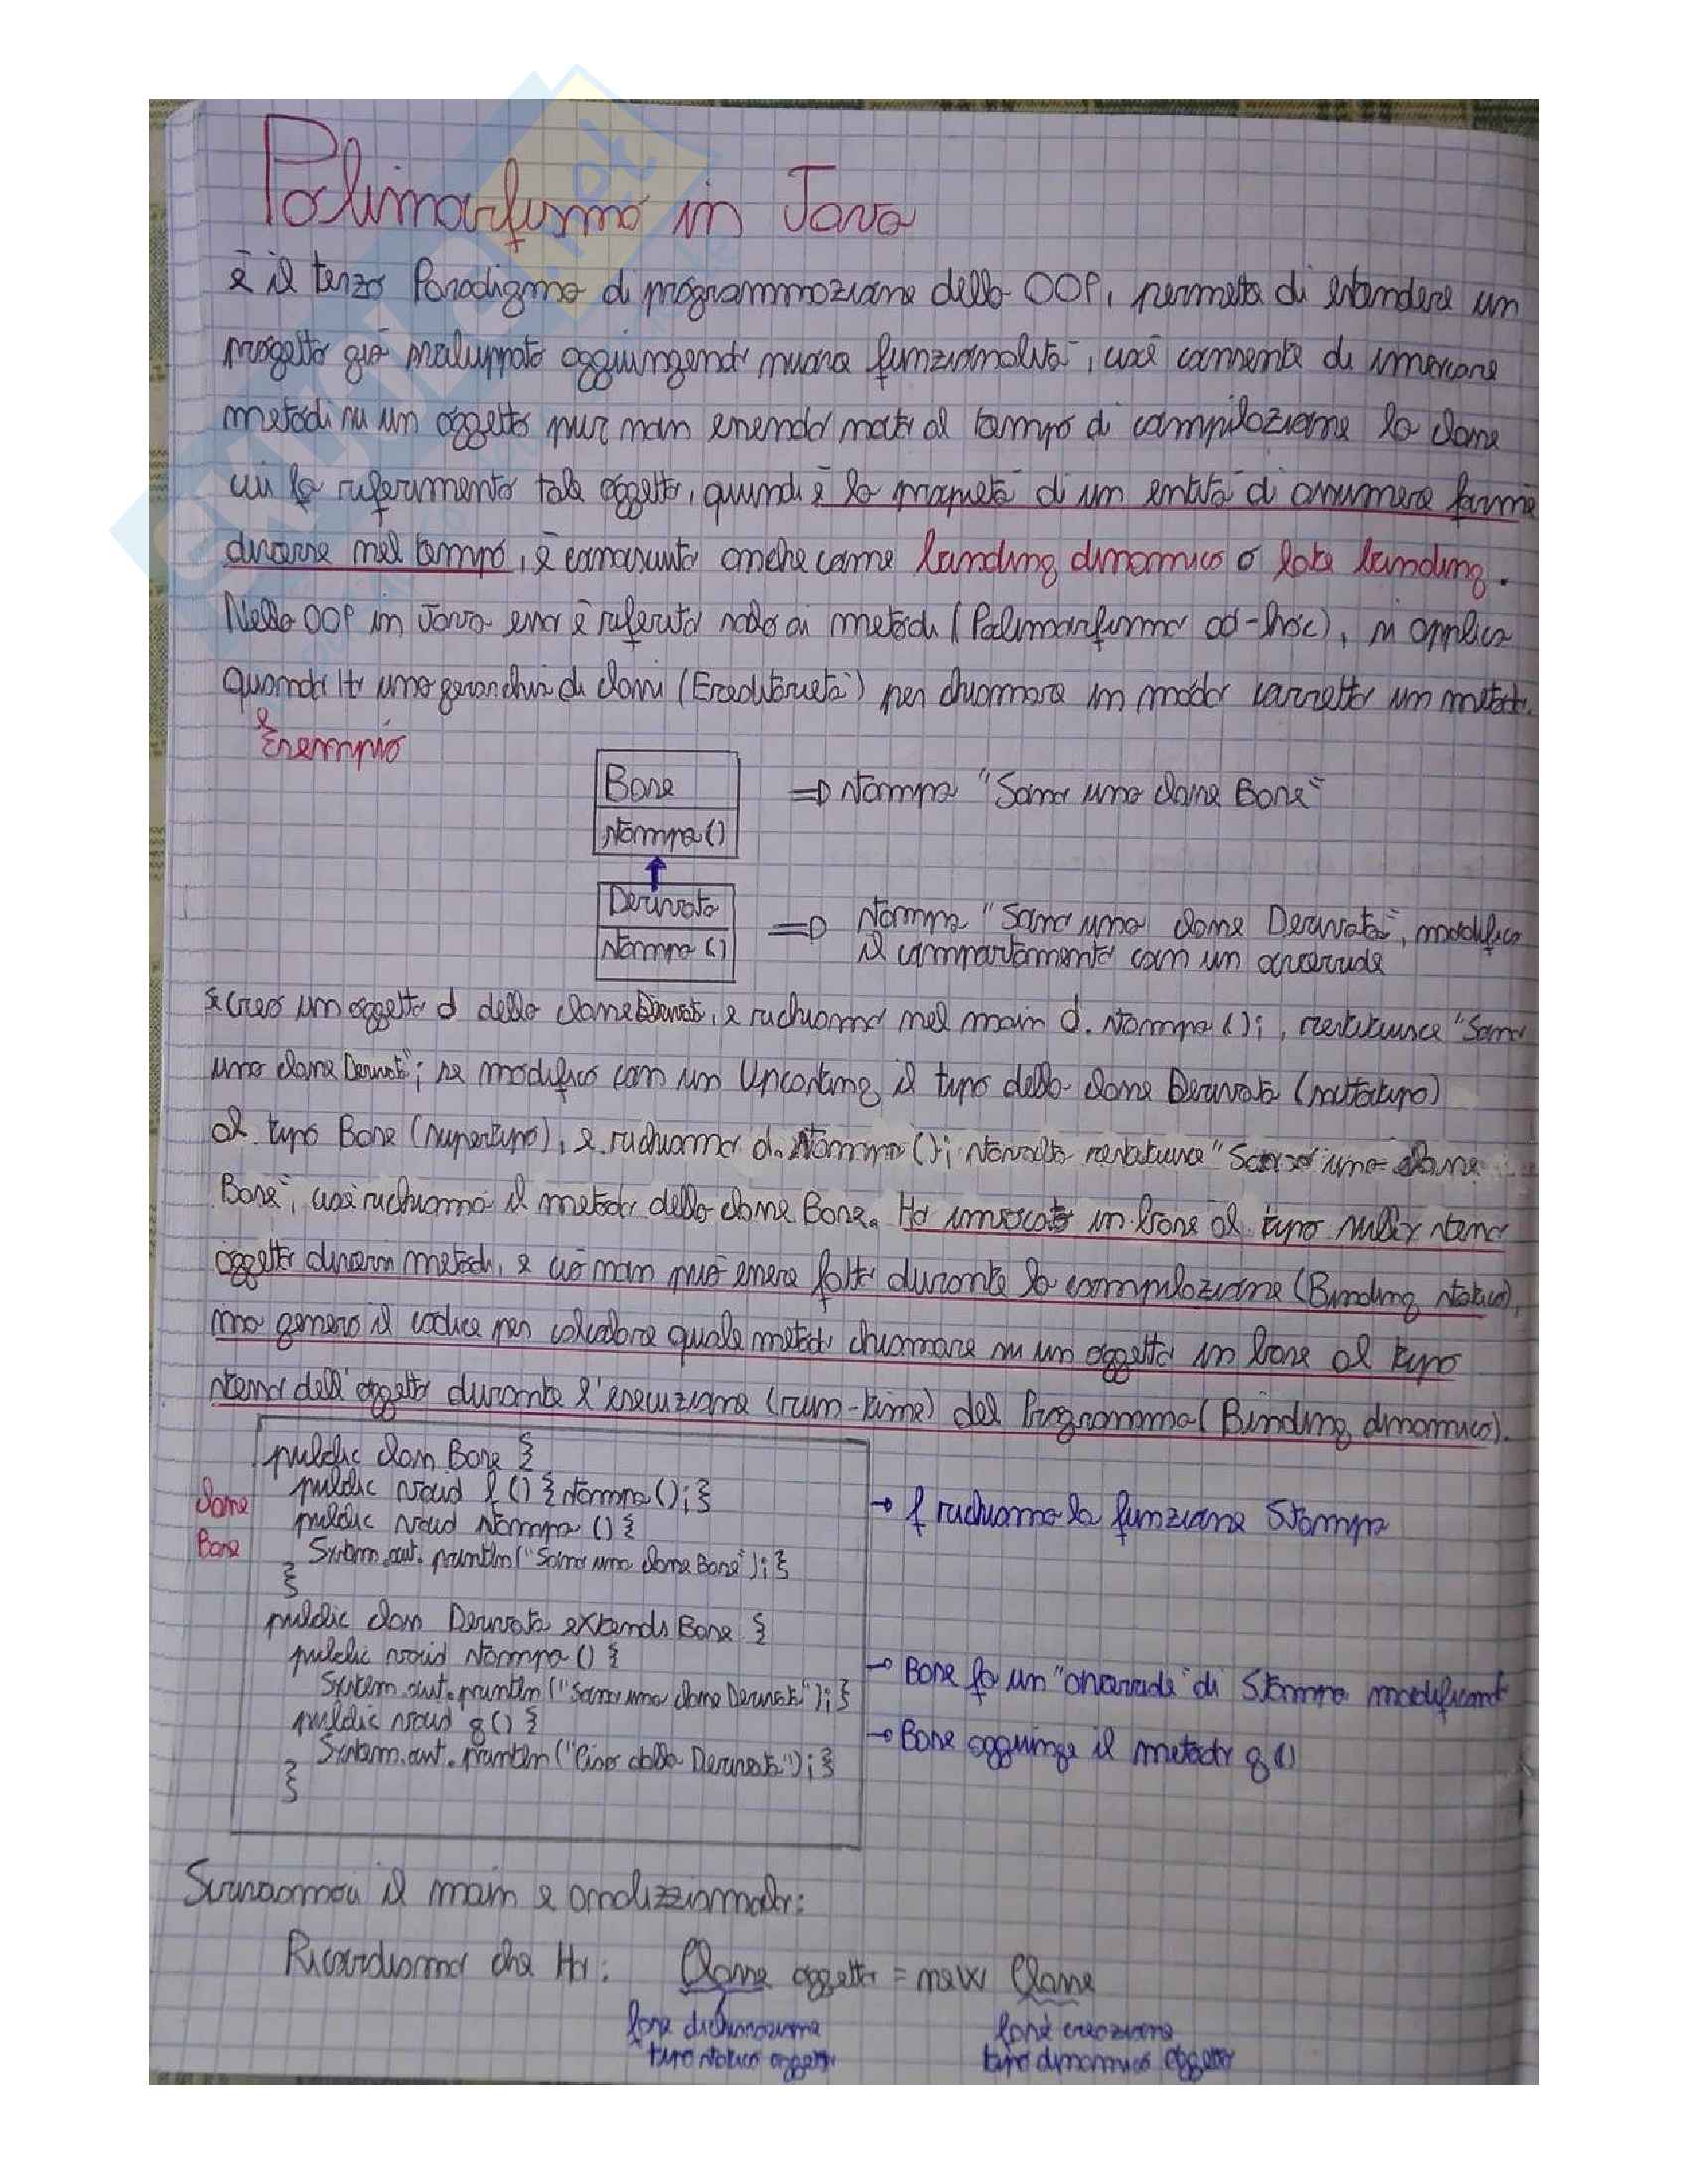 Polimorfismo in Java
è il terzo Paradigma di programmazione della OOP, permette di estendere un
progetto già sviluppato aggiungendo nuove funzionalità, così consente di invocare
metodi su un oggetto pur non essendo noto al tempo di compilazione la classe
cui fa riferimento tale oggetto, quindi è la proprietà di un entità di assumere forme
diverse nel tempo, è conosciuto anche come binding dinamico o late binding.
Nella OOP in Java esso è riferito solo ai metodi (Polimorfismo ad-hoc), si applica
quando Ho una gerarchia di classi (Ereditarietà) per chiamare in modo corretto un metodo.
Esempio
Base
Stampa()
=> Stampa "Sono una classe Base"
Derivata
Stampa()
=> Stampa "Sono una classe Derivata", modifico
il comportamento con un override
Se creo un oggetto d della classe Derivata, e richiamo nel main d.Stampa();, restituisce "Sono
una classe Derivata"; se modifico con un Upcasting il tipo della classe Derivata (sottotipo)
al tipo Base (supertipo), e richiamo d.Stampa(); stavolta restituisce "Sono una classe
Base", così richiamo il metodo della classe Base. Ho invocato in base al tipo sullo stesso
oggetto diversi metodi, e ciò non può essere fatto durante la compilazione (Binding statico),
ma genero il codice per calcolare quale metodo chiamare su un oggetto in base al tipo
stesso dell'oggetto durante l'esecuzione (run-time) del Programma (Binding dinamico).
public class Base {
public void f() {Stampa();}
public void Stampa() {
System.out.println("Sono una classe Base");}
}
classe
Base
→ f richiama la funzione Stampa
public class Derivata extends Base {
public void Stampa() {
System.out.println("Sono una classe Derivata");}
→ Base fa un "override" di Stampa modificando
public void g() {
→ Base aggiunge il metodo g()
System.out.println("Ciao dalla Derivata");}
}
Scriviamoci il main e analizziamolo:
Ricordiamo che Ho: Classe oggetto = new Classe
fase dichiarazione
tipo statico oggetto
fase creazione
tipo dinamico oggetto